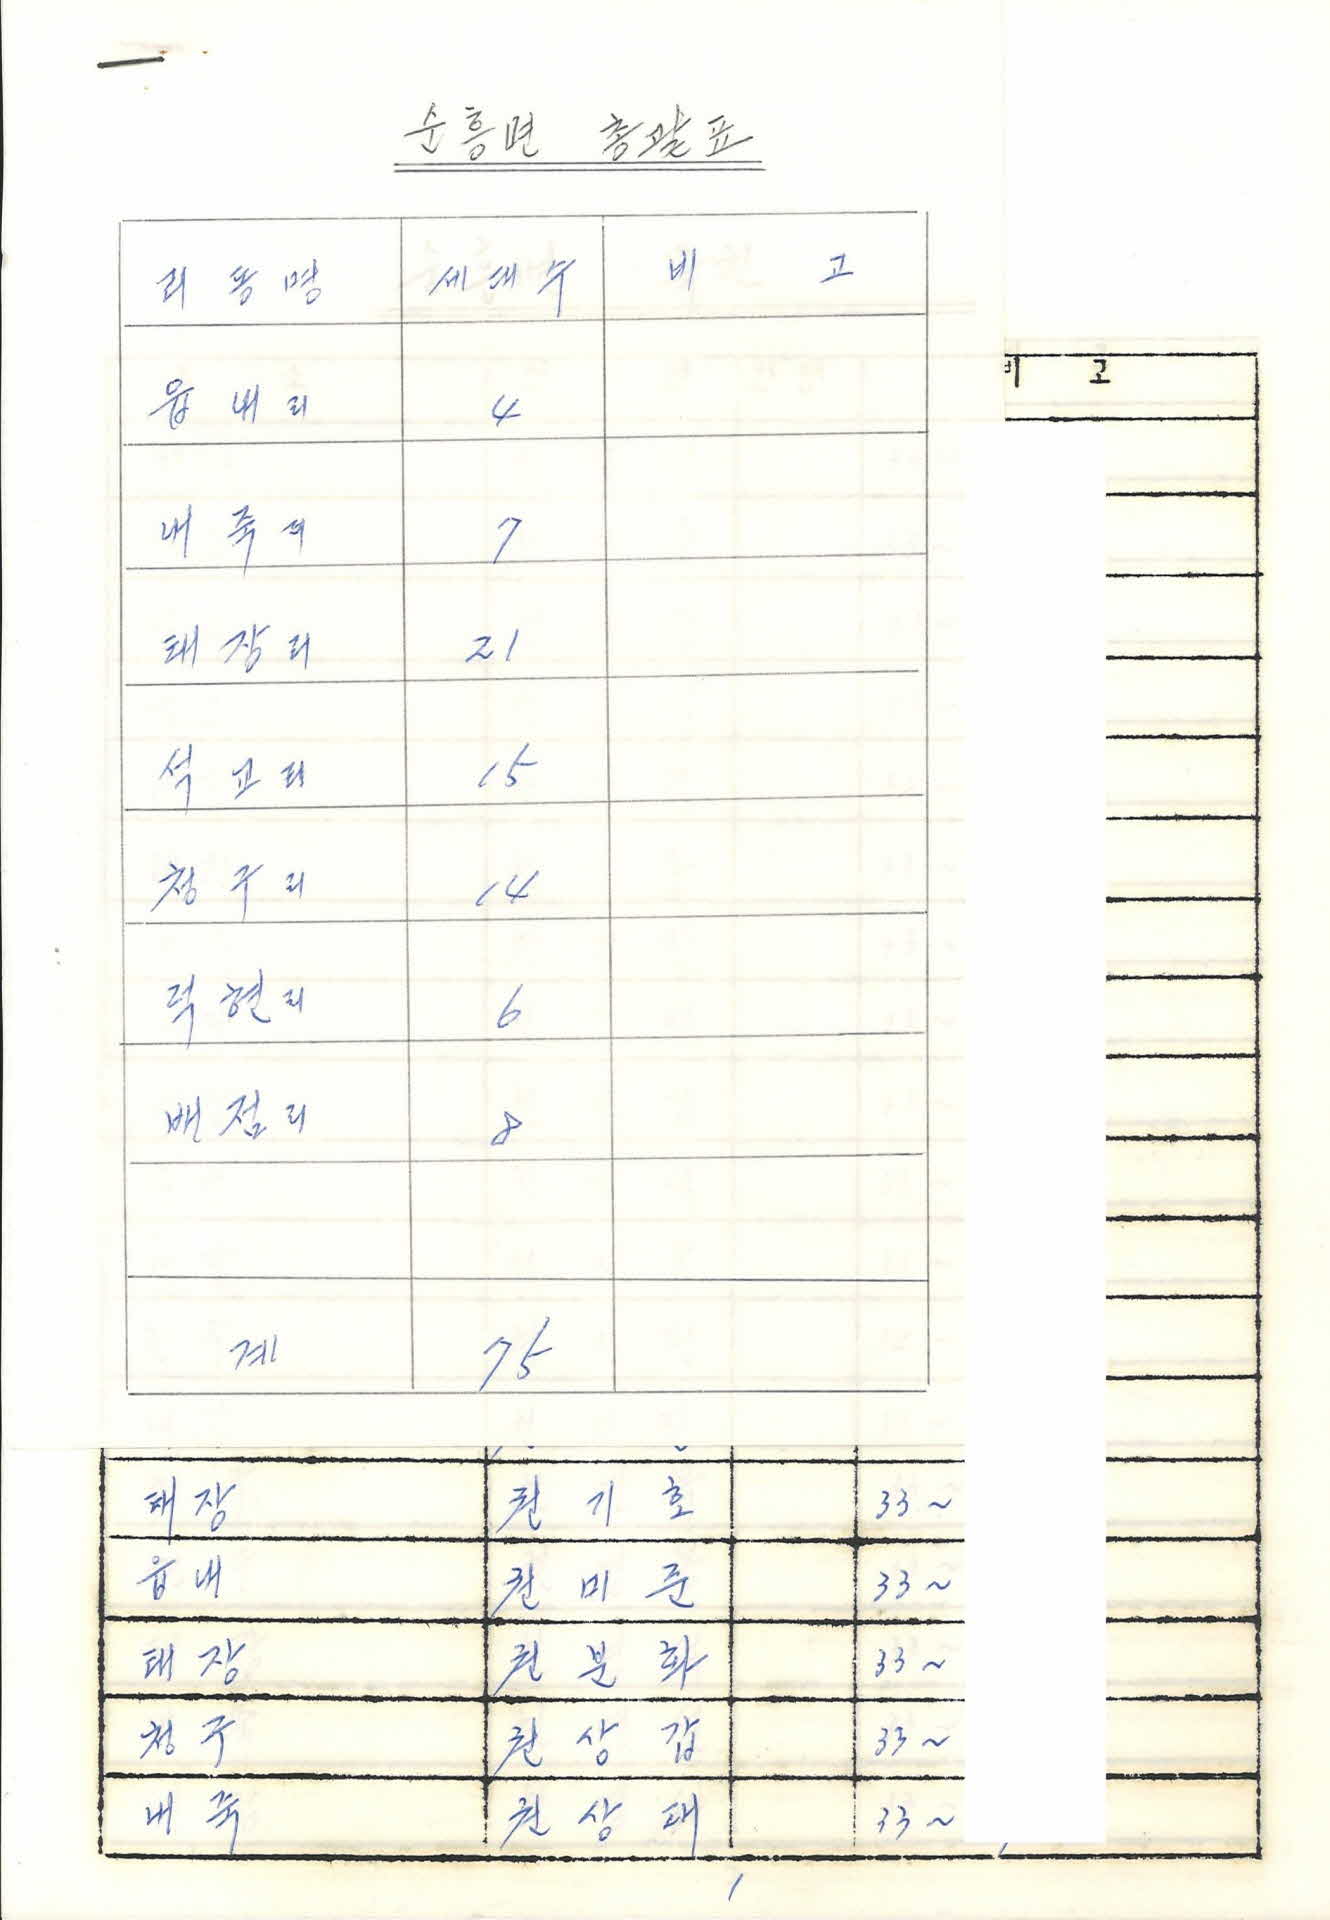 순흥면 총괄표
리동명 세대수 비 고
읍내리 4
내죽리 7
태장리 21
석교리 15
청구리 14
덕현리 6
배점리 8
계 75
비 고
태장 권기호 33~
읍내 권미준 33~
태장 권분화 33~
청구 권상갑 33~
내죽 권상태 33~
1